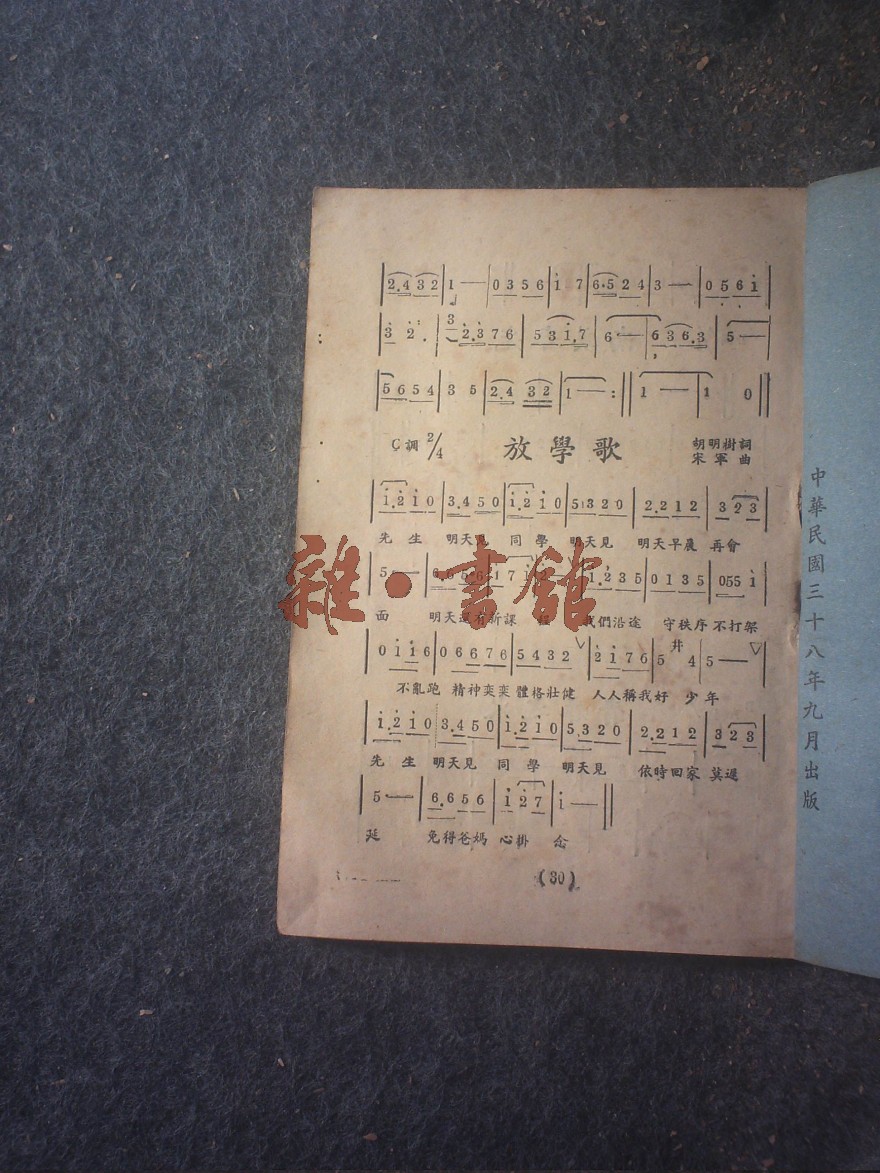 2.4 3 2 | 1 — | 0 3 5 6 | i 7 | 6·5 2 4 | 3 — | 0 5 6 i
3 2 . | 3 2.3 7 6 | 5 3 i.7 | 6 — | 6 3 6.3 | 5 —
5 6 5 4 | 3 5 | 2.4 3 2 | 1 — :|| 1 — | 1 0 ||
C調 2/4 放學歌 胡明樹詞
宋軍曲
i.2 i 0 | 3.4 5 0 | i.2 i 0 | 5 3 2 0 | 2.2 1 2 | 3 2 3
先生 明天見 同學 明天見 明天早晨 再會
5 — | 6.6 5 6 | 7 | i.2 3 5 | 0 1 3 5 | 0 5 5 i
面 明天還有新課 我們沿途 守秩序不打架
0 i i 6 | 0 6 6 7 6 | 5 4 3 2 | 2 i 7 6 | 5 井4 | 5 —
不亂跑 精神奕奕體格壯健 人人稱我好少年
i.2 i 0 | 3.4 5 0 | i.2 i 0 | 5.3 2 0 | 2.2 1 2 | 3 2 3
先生 明天見 同學 明天見 依時回家 莫遲
5 — | 6.6 5 6 | i 2 7 | i — ||
延 免得爸媽 心掛念
(30)
中華民國三十八年九月出版
雜·書館